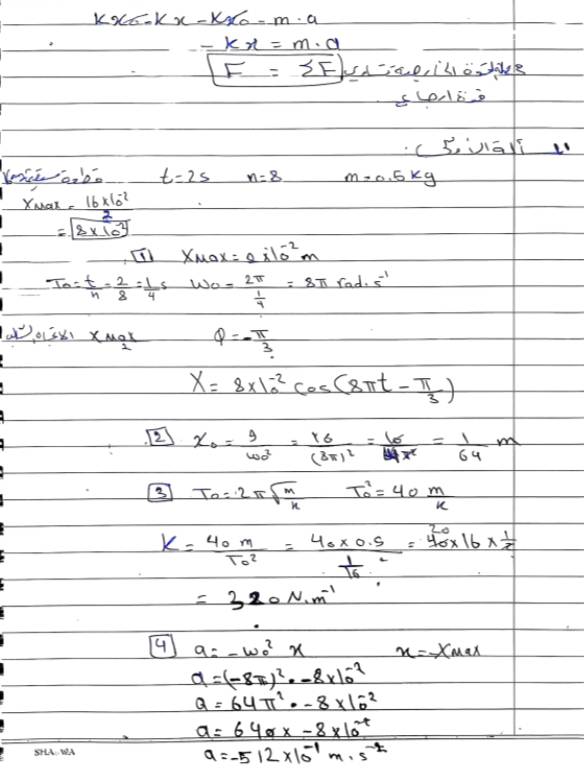 Kx₀ - Kx - Kx₀ = m·a
- Kx = m·a
F = ΣF
t = 2s n = 8 m = 0.5 kg
Xmax = 16×10⁻² / 2
= 8×10⁻²
1 Xmax = 8×10⁻² m
T₀ = t/n = 2/8 = 1/4 s ω₀ = 2π / (1/4) = 8π rad·s⁻¹
Xmax/2 φ = -π/3
X = 8×10⁻² cos(8πt - π/3)
2 x₀ = g/ω₀² = 10/(8π)² = = 1/64 m
3 T₀ = 2π √(m/k) T₀² = 40 m/k
K = 40 m / T₀² = 40×0.5 / (1/16) = 40×16×1/2
= 320 N.m⁻¹
4 a = -ω₀² x x = -Xmax
a = (-8π)² · -8×10⁻²
a = 64π² · -8×10⁻²
a = 640 × -8×10⁻²
a = -512×10⁻¹ m·s⁻²